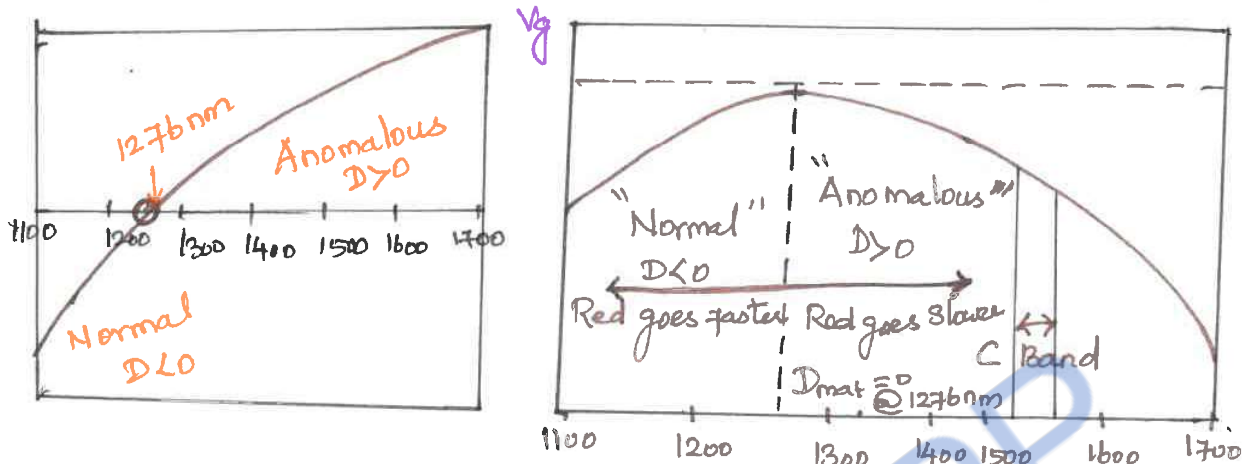 1276nm
Anomalous
D>0
1100 1200 1300 1400 1500 1600 1700
Normal
D<0
Vg
"Normal"
D<0
"Anomalous"
D>0
Red goes faster
Red goes Slower
C Band
Dmat = 0
@1276nm
1100 1200 1300 1400 1500 1600 1700